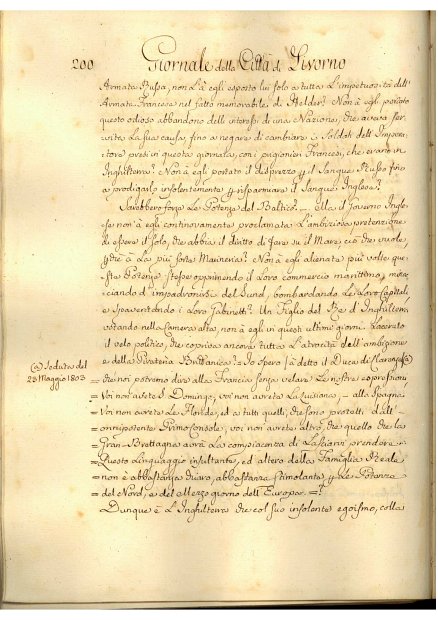 200 Giornale della Città di Livorno
Armata Russa, non l'à egli esposta lui solo a tutta l'impetuosità dell'
Armata Francese nel fatto memorabile di Helder? Non à egli portato
questo odioso abbandono delli interessi di una Nazione, che aveva ser
vita la sua causa, fino a negare di cambiare i Soldati dell'Impera
tore presi in questa giornata, con i prigionieri Francesi, che erano in
Inghilterra? Non à egli portato il disprezzo il Sangue Russo fino
a prodigarlo insolentemente risparmiare il Sangue Inglese?
Sarebbero forse le Potenze del Baltico? Ma il Governo Ingle
se non à egli continovamente proclamata l'ambiziosa pretenzione
di essere il solo, che abbia il diritto di fare su il Mare ciò che vuole,
à la più forte Marineria? Non à egli alienate più volte que
ste Potenze stesse opprimendo il loro commercio marittimo, minac
ciando d'impadronirsi del Sund, bombardando le loro Capitali,
e spaventando i loro Gabinetti? Un Figlio del Re d'Inghilterra
votando nella Camera alta, non à egli in questi ultimi giorni lacerato
il velo politico, che copriva ancora tutta l'atrocità dell'ambizione
e della Pirateria Brittanica? Io spero (à detto il Duca di Clarenza (a)
(a) Seduta del
23 Maggio 1803
= che non potremo dire alla Francia senza velare le nostre espressioni
= Voi non avrete S. Domingo; voi non avrete la Luisiana, alla Spagna
= Voi non avrete le Floride, ed a tutti quelli, che sono protetti dall'
= onnipotente Primo Console, voi non avrete altro, che quello che la
= Gran-Brettagna avrà la compiacenza di lasciarvi prendere =
= Questo linguaggio insultante, ed altero della Famiglia Reale
= non è abbastanza chiaro, abbastanza stimolante le Potenze
= del Nord, e del Mezzo giorno dell'Europa =?
Dunque è l'Inghilterra che col suo insolente egoismo, colla